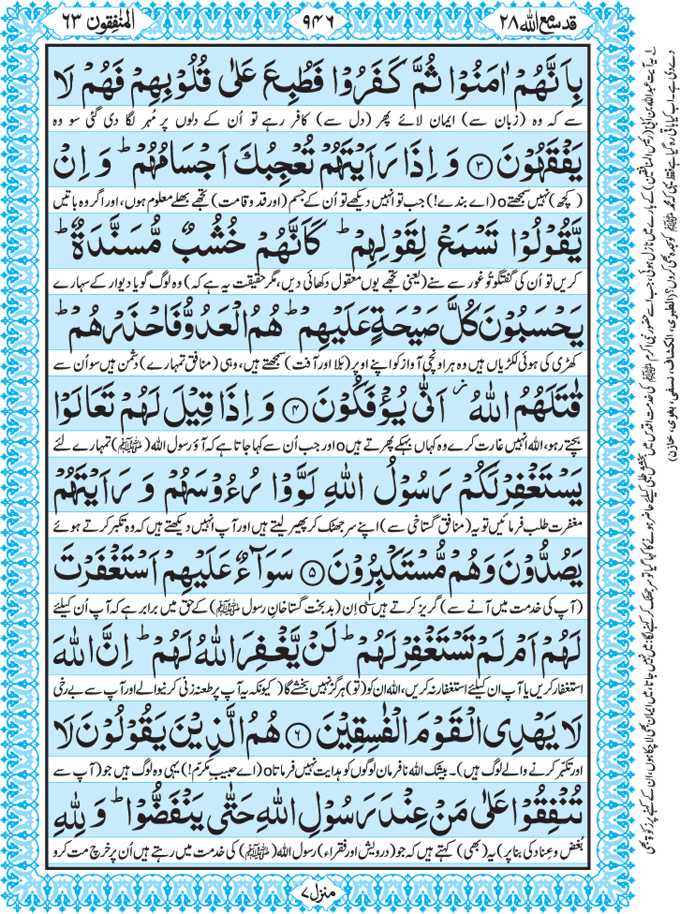 قد سمع اللہ ۲۸
۹۴۶
المنٰفقون ۶۳
بِاَنَّهُمْ اٰمَنُوْا ثُمَّ كَفَرُوْا فَطُبِعَ عَلٰى قُلُوْبِهِمْ فَهُمْ لَا
سے کہ وہ (زبان سے) ایمان لائے پھر (دل سے) کافر رہے تو اُن کے دلوں پر مُہر لگا دی گئی سو وہ
يَفْقَهُوْنَ ۳ وَ اِذَا رَاَيْتَهُمْ تُعْجِبُكَ اَجْسَامُهُمْ ؕ وَ اِنْ
(کچھ) نہیں سمجھتےo (اے بندے!) جب تو انہیں دیکھے تو اُن کے جسم (اور قد و قامت) تجھے بھلے معلوم ہوں، اور اگر وہ باتیں
يَّقُوْلُوْا تَسْمَعْ لِقَوْلِهِمْ ؕ كَاَنَّهُمْ خُشُبٌ مُّسَنَّدَةٌ ؕ
کریں تو اُن کی گفتگو تُو غور سے سنے (یعنی تجھے یوں معقول دکھائی دیں، مگر حقیقت یہ ہے کہ) وہ لوگ گویا دیوار کے سہارے
يَحْسَبُوْنَ كُلَّ صَيْحَةٍ عَلَيْهِمْ ؕ هُمُ الْعَدُوُّ فَاحْذَرْهُمْ ؕ
کھڑی کی ہوئی لکڑیاں ہیں وہ ہر اونچی آواز کو اپنے اوپر (بَلا اور آفت) سمجھتے ہیں، وہی (منافق تمہارے) دشمن ہیں سو اُن سے
قٰتَلَهُمُ اللّٰهُ ؗ اَنّٰى يُؤْفَكُوْنَ ۴ وَ اِذَا قِيْلَ لَهُمْ تَعَالَوْا
بچتے رہو، اللہ انہیں غارت کرے وہ کہاں بہکے پھرتے ہیںo اور جب اُن سے کہا جاتا ہے کہ آؤ رسول اللہ (ﷺ) تمہارے لئے
يَسْتَغْفِرْ لَكُمْ رَسُوْلُ اللّٰهِ لَوَّوْا رُءُوْسَهُمْ وَ رَاَيْتَهُمْ
مغفرت طلب فرمائیں تو یہ (منافق گستاخی سے) اپنے سر جھٹک کر پھیر لیتے ہیں اور آپ انہیں دیکھتے ہیں کہ وہ تکبر کرتے ہوئے
يَصُدُّوْنَ وَ هُمْ مُّسْتَكْبِرُوْنَ ۵ سَوَآءٌ عَلَيْهِمْ اَسْتَغْفَرْتَ
(آپ کی خدمت میں آنے سے) گریز کرتے ہیںo اِن (بدبخت گستاخانِ رسول ﷺ) کے حق میں برابر ہے کہ آپ اُن کیلئے
لَهُمْ اَمْ لَمْ تَسْتَغْفِرْ لَهُمْ ؕ لَنْ يَّغْفِرَ اللّٰهُ لَهُمْ ؕ اِنَّ اللّٰهَ
استغفار کریں یا آپ ان کیلئے استغفار نہ کریں، اللہ ان کو (تو) ہرگز نہیں بخشے گا (کیونکہ یہ آپ پر طعنہ زنی کرنیوالے اور آپ سے بے رخی
لَا يَهْدِي الْقَوْمَ الْفٰسِقِيْنَ ۶ هُمُ الَّذِيْنَ يَقُوْلُوْنَ لَا
اور تکبر کرنے والے لوگ ہیں)۔ بیشک اللہ نافرمان لوگوں کو ہدایت نہیں فرماتاo (اے حبیبِ مکرّم!) یہی وہ لوگ ہیں جو (آپ سے
تُنْفِقُوْا عَلٰى مَنْ عِنْدَ رَسُوْلِ اللّٰهِ حَتّٰى يَنْفَضُّوْا ؕ وَ لِلّٰهِ
بُغض و عِناد کی بنا پر) یہ (بھی) کہتے ہیں کہ جو (درویش اور فقراء) رسول اللہ (ﷺ) کی خدمت میں رہتے ہیں اُن پر خرچ مت کرو
منزل ۷